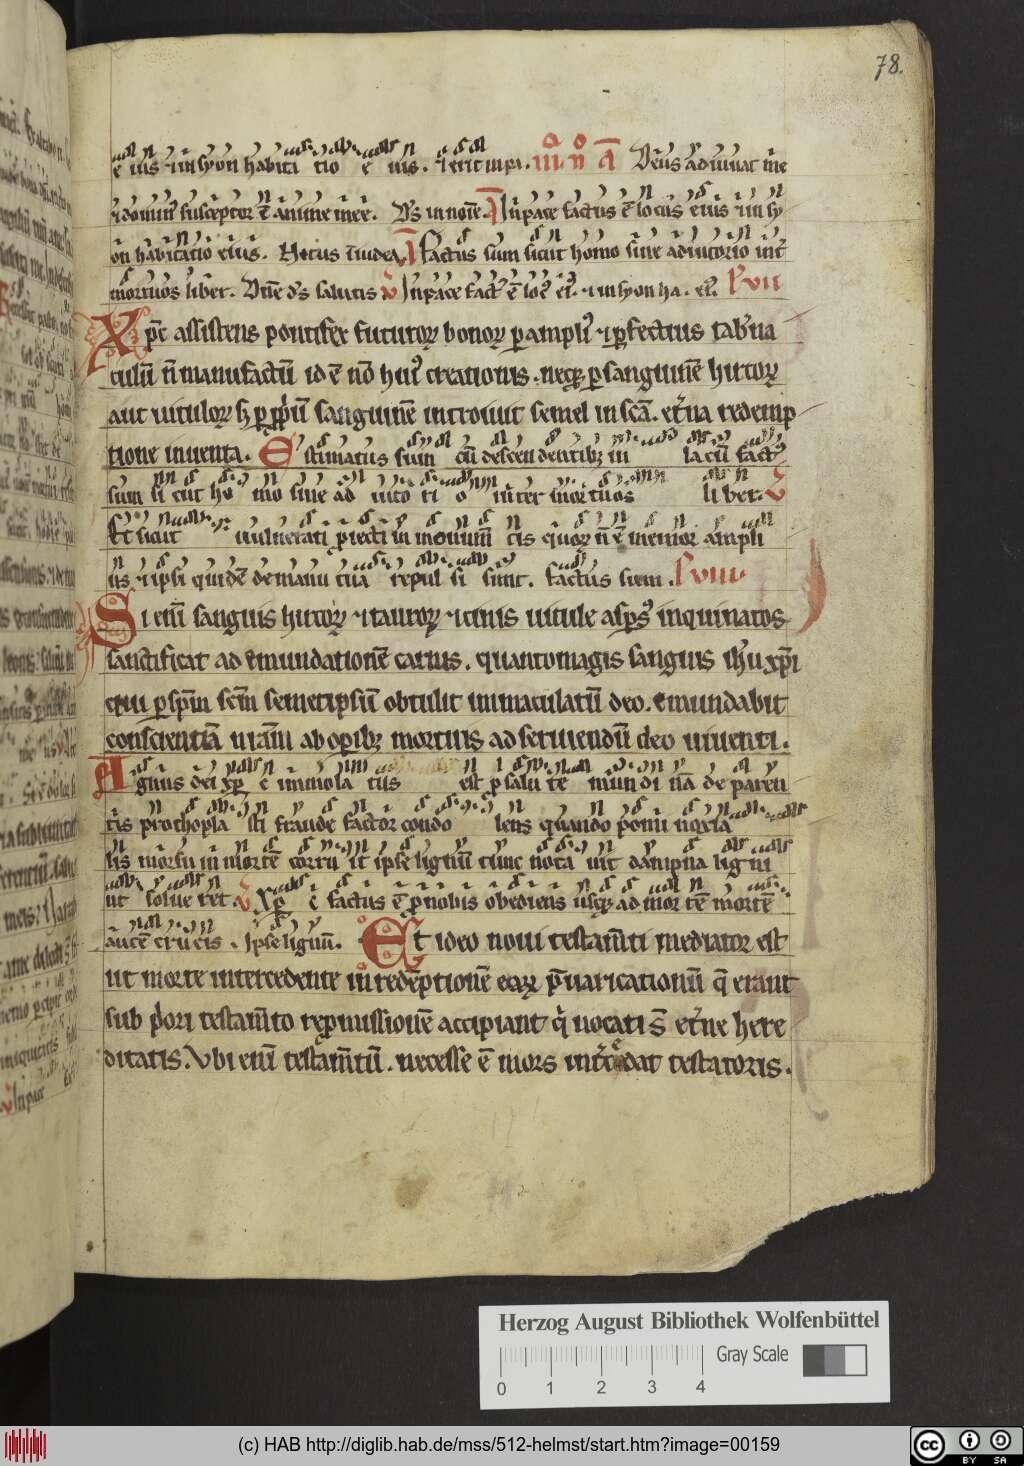 78.
e ius ⁊ in syon habita tio e ius. ⁊ erit in pa. iii. n. a Deus adiuuat me
⁊ domin' susceptor ē anime mee. Ds in noīe. a In pace factus ē locus eius ⁊ in sy
on habitatio eius. Notus ī iudea. a Factus sum sicut homo sine adiutorio int̄
mortuos liber. Dn̄e ds salutis v In pace fact' ē lo' ei'. ⁊ in syon ha. ei'. L' vii
Xp̄c assistens pontifex futuroꝝ bonoꝝ p ampli' ⁊ pfectius tab'na
culū n̄ manufactū id ē nō hui' creationis. neqꝫ p sanguinē hircoꝝ
aut uituloꝝ sꝫ p ppū sanguinē introiuit semel in scā. et'na redemp
tione inuenta. Estimatus sum cū descendentibꝫ in lacū fact'
sum si cut ho mo sine ad iuto ri o inter mortuos liber. v
Et sicut uulnerati proiecti in monum tis quoꝝ n ē memor ampli
us ⁊ ipsi quidē de manu tua repul si sunt. factus sum. L' viii
Si enī sanguis hircoꝝ ⁊ tauroꝝ ⁊ cinis uitule aspers' inquinatos
sanctificat ad emundationē carnis. quantomagis sanguis ihu xp̄i
qui p spm̄ scm̄ semetipsū obtulit immaculatū deo. emundabit
conscientiā nr̄am ab opibꝫ mortuis ad seruiendū deo uiuenti.
Agnus dei xp̄c immola tus est p salu te mun di nā de paren
tis prothopla sti fraude factor condo lens quando pomi noxia
lis morsu in mortē corru it ipse lignū tunc nota uit dampna ligni
ut solue ret. v Xp̄c factus ē p nobis obediens usqꝫ ad mortē mortē
autē crucis. Ipse lignū. Et ideo noui testam̄ti mediator est
ut morte intercedente in redēptionē eaꝝ p̄uaricationū q̄ erant
sub p'ori testam̄to repmissionē accipiant q' uocati s̄ et'ne here
ditatis. Vbi enī testam̄tū. necesse ē mors int'cedat testatoris.
Herzog August Bibliothek Wolfenbüttel
Gray Scale
0 1 2 3 4
(c) HAB http://diglib.hab.de/mss/512-helmst/start.htm?image=00159
cc BY SA